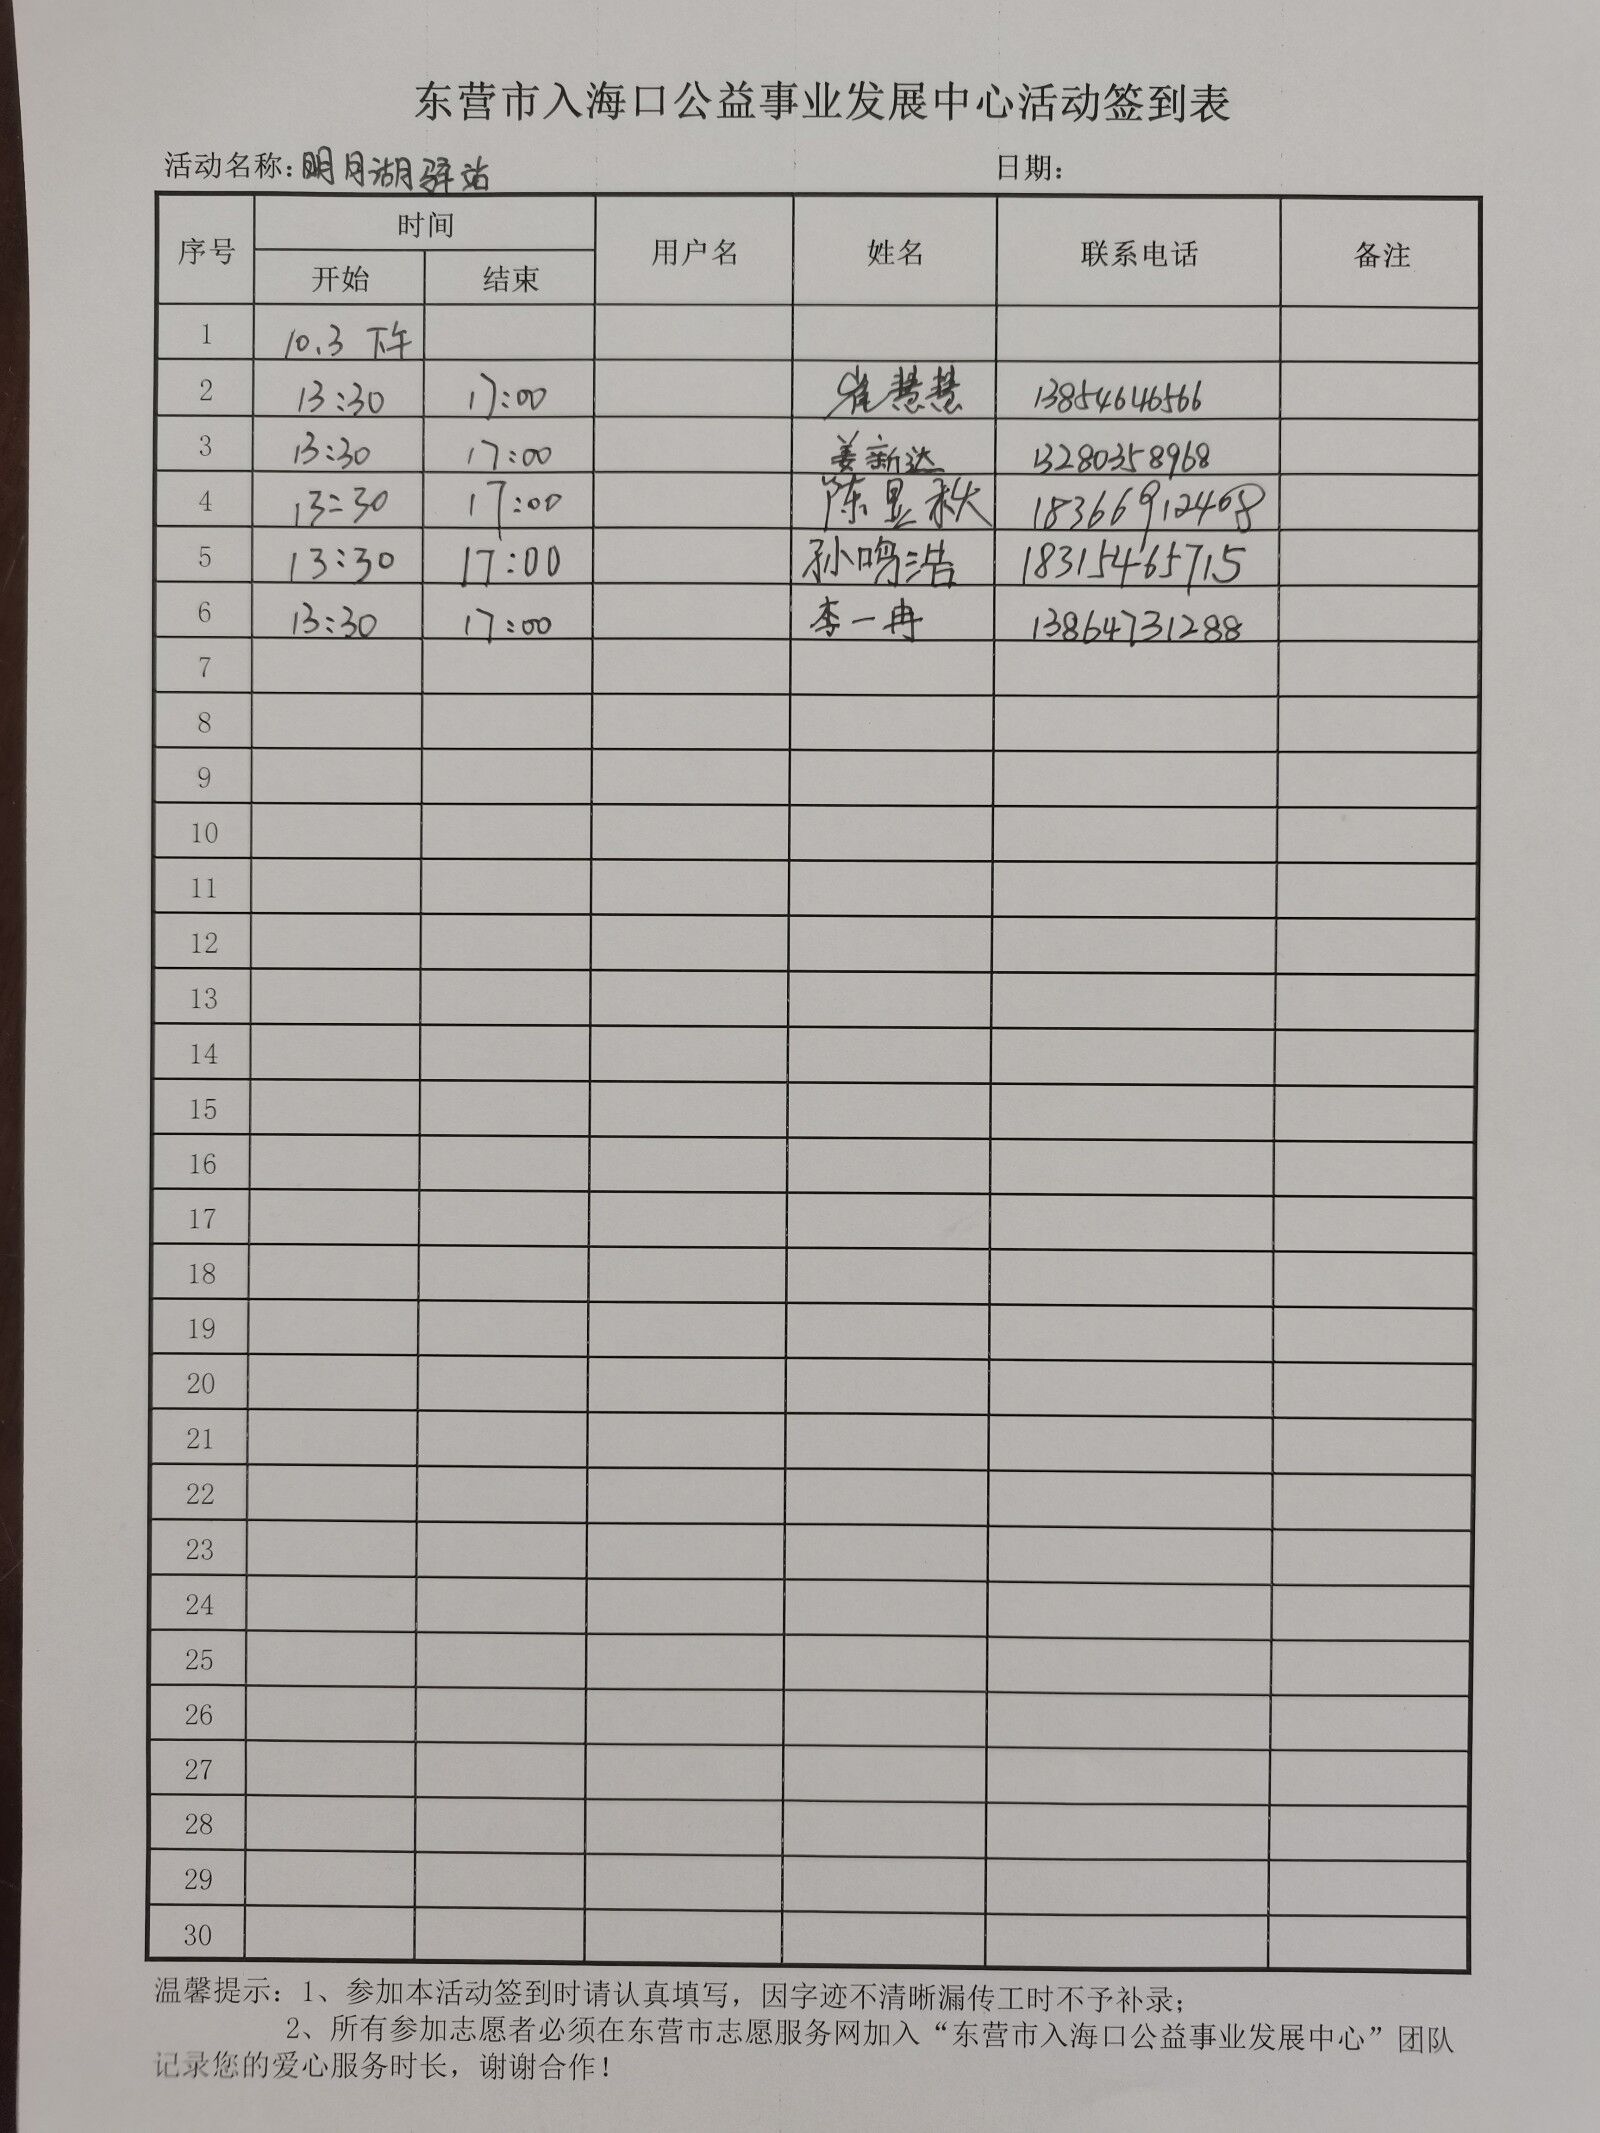 东营市入海口公益事业发展中心活动签到表
活动名称：明月湖驿站 日期：
序号 时间 用户名 姓名 联系电话 备注
开始 结束
1 10.3 下午
2 13:30 17:00 崔慧慧 13854646566
3 13:30 17:00 姜新达 13280358968
4 13:30 17:00 陈显秋 18366912408
5 13:30 17:00 孙鸣浩 18315465715
6 13:30 17:00 李一冉 13864731288
7
8
9
10
11
12
13
14
15
16
17
18
19
20
21
22
23
24
25
26
27
28
29
30
温馨提示：1、参加本活动签到时请认真填写，因字迹不清晰漏传工时不予补录；
2、所有参加志愿者必须在东营市志愿服务网加入“东营市入海口公益事业发展中心”团队
记录您的爱心服务时长，谢谢合作！